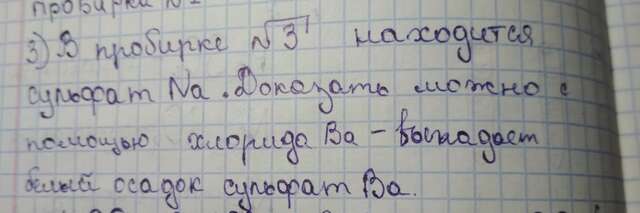 пробирки №
3) В пробирке №3 находится
сульфат Na. Доказать можно с
помощью хлорида Ba – выпадает
белый осадок сульфат Ba.